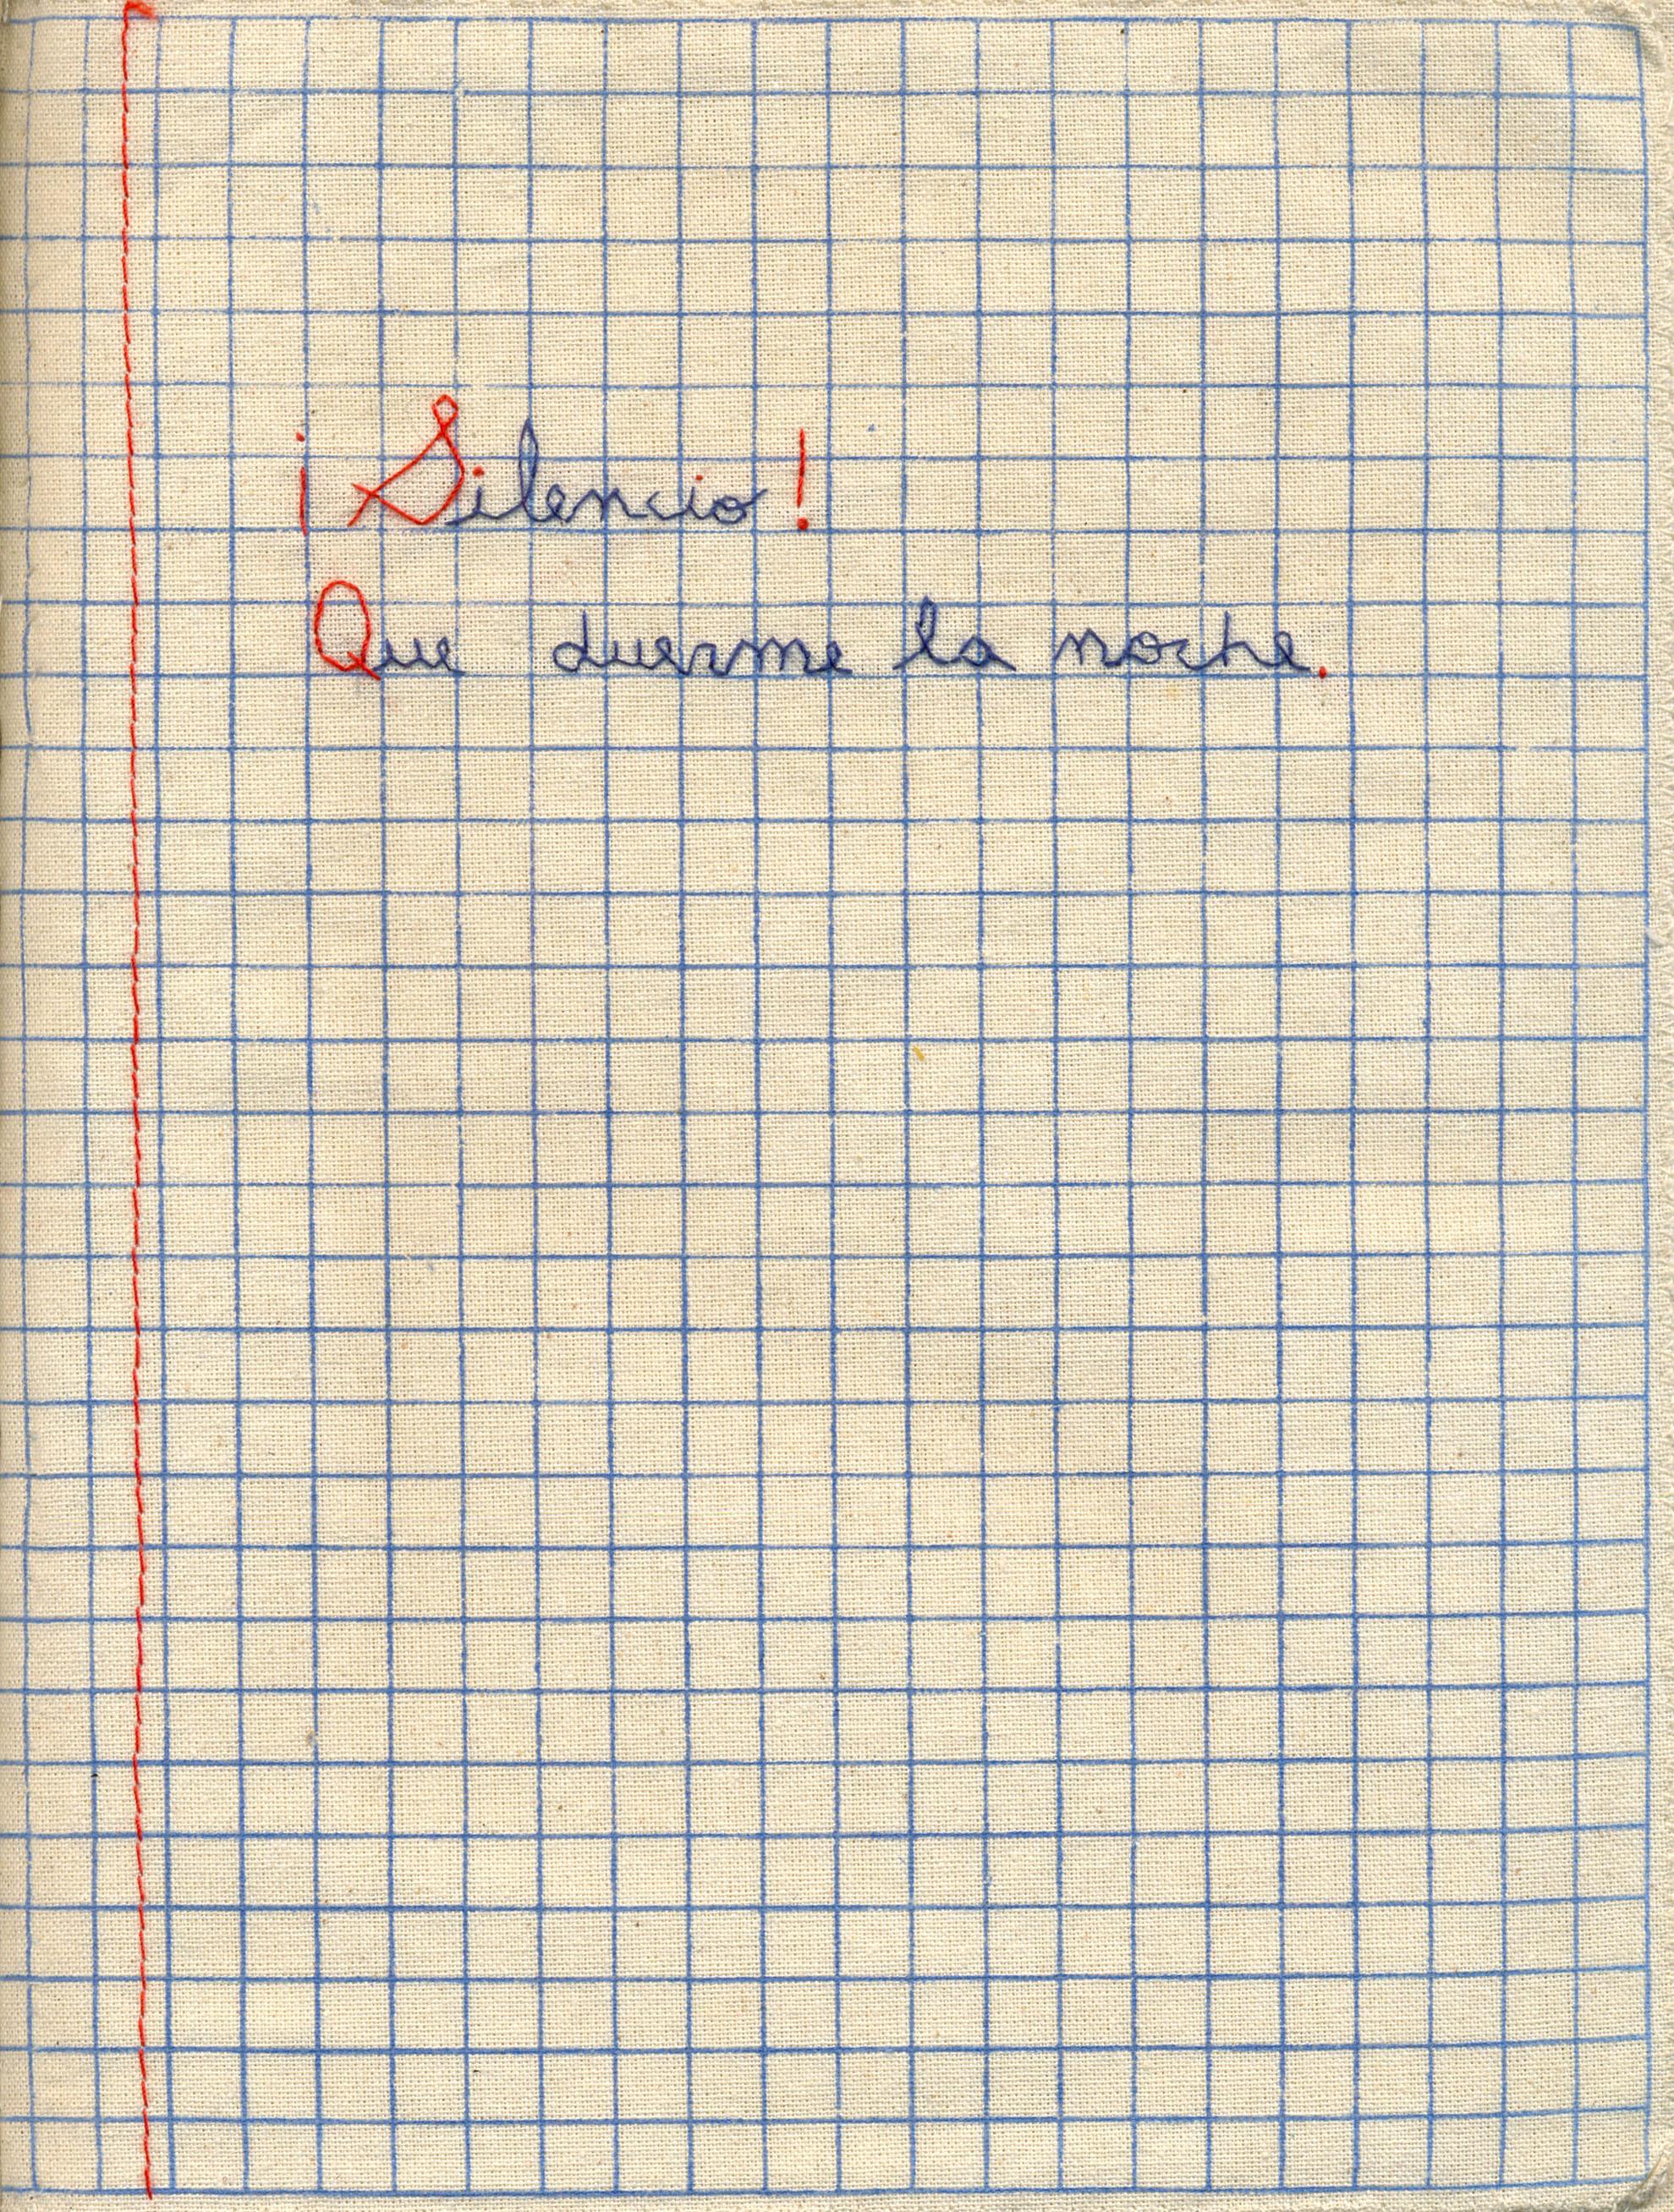 ¡Silencio!
Que duerme la noche.